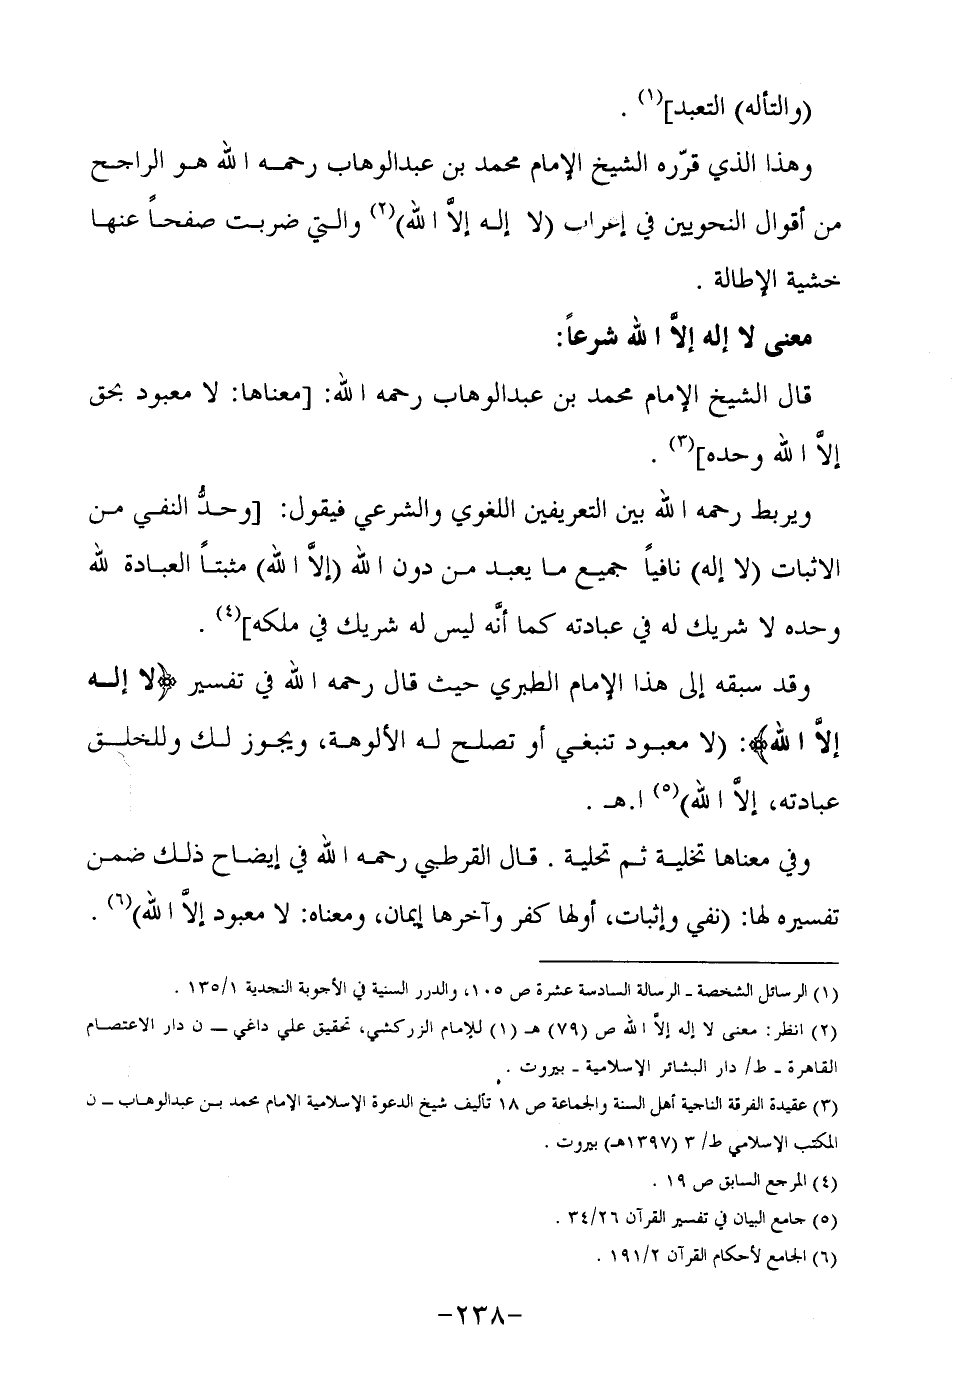 (والتأله) التعبد](١) .
وهذا الذي قرّره الشيخ الإمام محمد بن عبدالوهاب رحمه الله هو الراجح
من أقوال النحويين في إعراب (لا إله إلاَّ الله)(٢) والتي ضربت صفحاً عنها
خشية الإطالة .
معنى لا إله إلاَّ الله شرعاً:
قال الشيخ الإمام محمد بن عبدالوهاب رحمه الله: [معناها: لا معبود بحق
إلاَّ الله وحده](٣) .
ويربط رحمه الله بين التعريفين اللغوي والشرعي فيقول: [وحدُّ النفي من
الاثبات (لا إله) نافياً جميع ما يعبد من دون الله (إلاَّ الله) مثبتاً العبادة لله
وحده لا شريك له في عبادته كما أنَّه ليس له شريك في ملكه](٤) .
وقد سبقه إلى هذا الإمام الطبري حيث قال رحمه الله في تفسير ﴿لا إله
إلاَّ الله﴾: (لا معبود تنبغي أو تصلح له الألوهة، ويجوز لك وللخلق
عبادته، إلاَّ الله)(٥) ا.هـ .
وفي معناها تخلية ثم تحلية . قال القرطبي رحمه الله في إيضاح ذلك ضمن
تفسيره لها: (نفي وإثبات، أولها كفر وآخرها إيمان، ومعناه: لا معبود إلاَّ الله)(٦) .
(١) الرسائل الشخصة ـ الرسالة السادسة عشرة ص ١٠٥، والدرر السنية في الأجوبة النجدية ١٣٥/١ .
(٢) انظر: معنى لا إله إلاَّ الله ص (٧٩) هـ (١) للإمام الزركشي، تحقيق علي داغي ــ ن دار الاعتصام
القاهرة ـ ط/ دار البشائر الإسلامية ـ بيروت .
(٣) عقيدة الفرقة الناجية أهل السنة والجماعة ص ١٨ تأليف شيخ الدعوة الإسلامية الإمام محمد بن عبدالوهاب ــ ن
المكتب الإسلامي ط/ ٣ (١٣٩٧هـ) بيروت .
(٤) المرجع السابق ص ١٩ .
(٥) جامع البيان في تفسير القرآن ٣٤/٢٦ .
(٦) الجامع لأحكام القرآن ١٩١/٢ .
-٢٣٨-